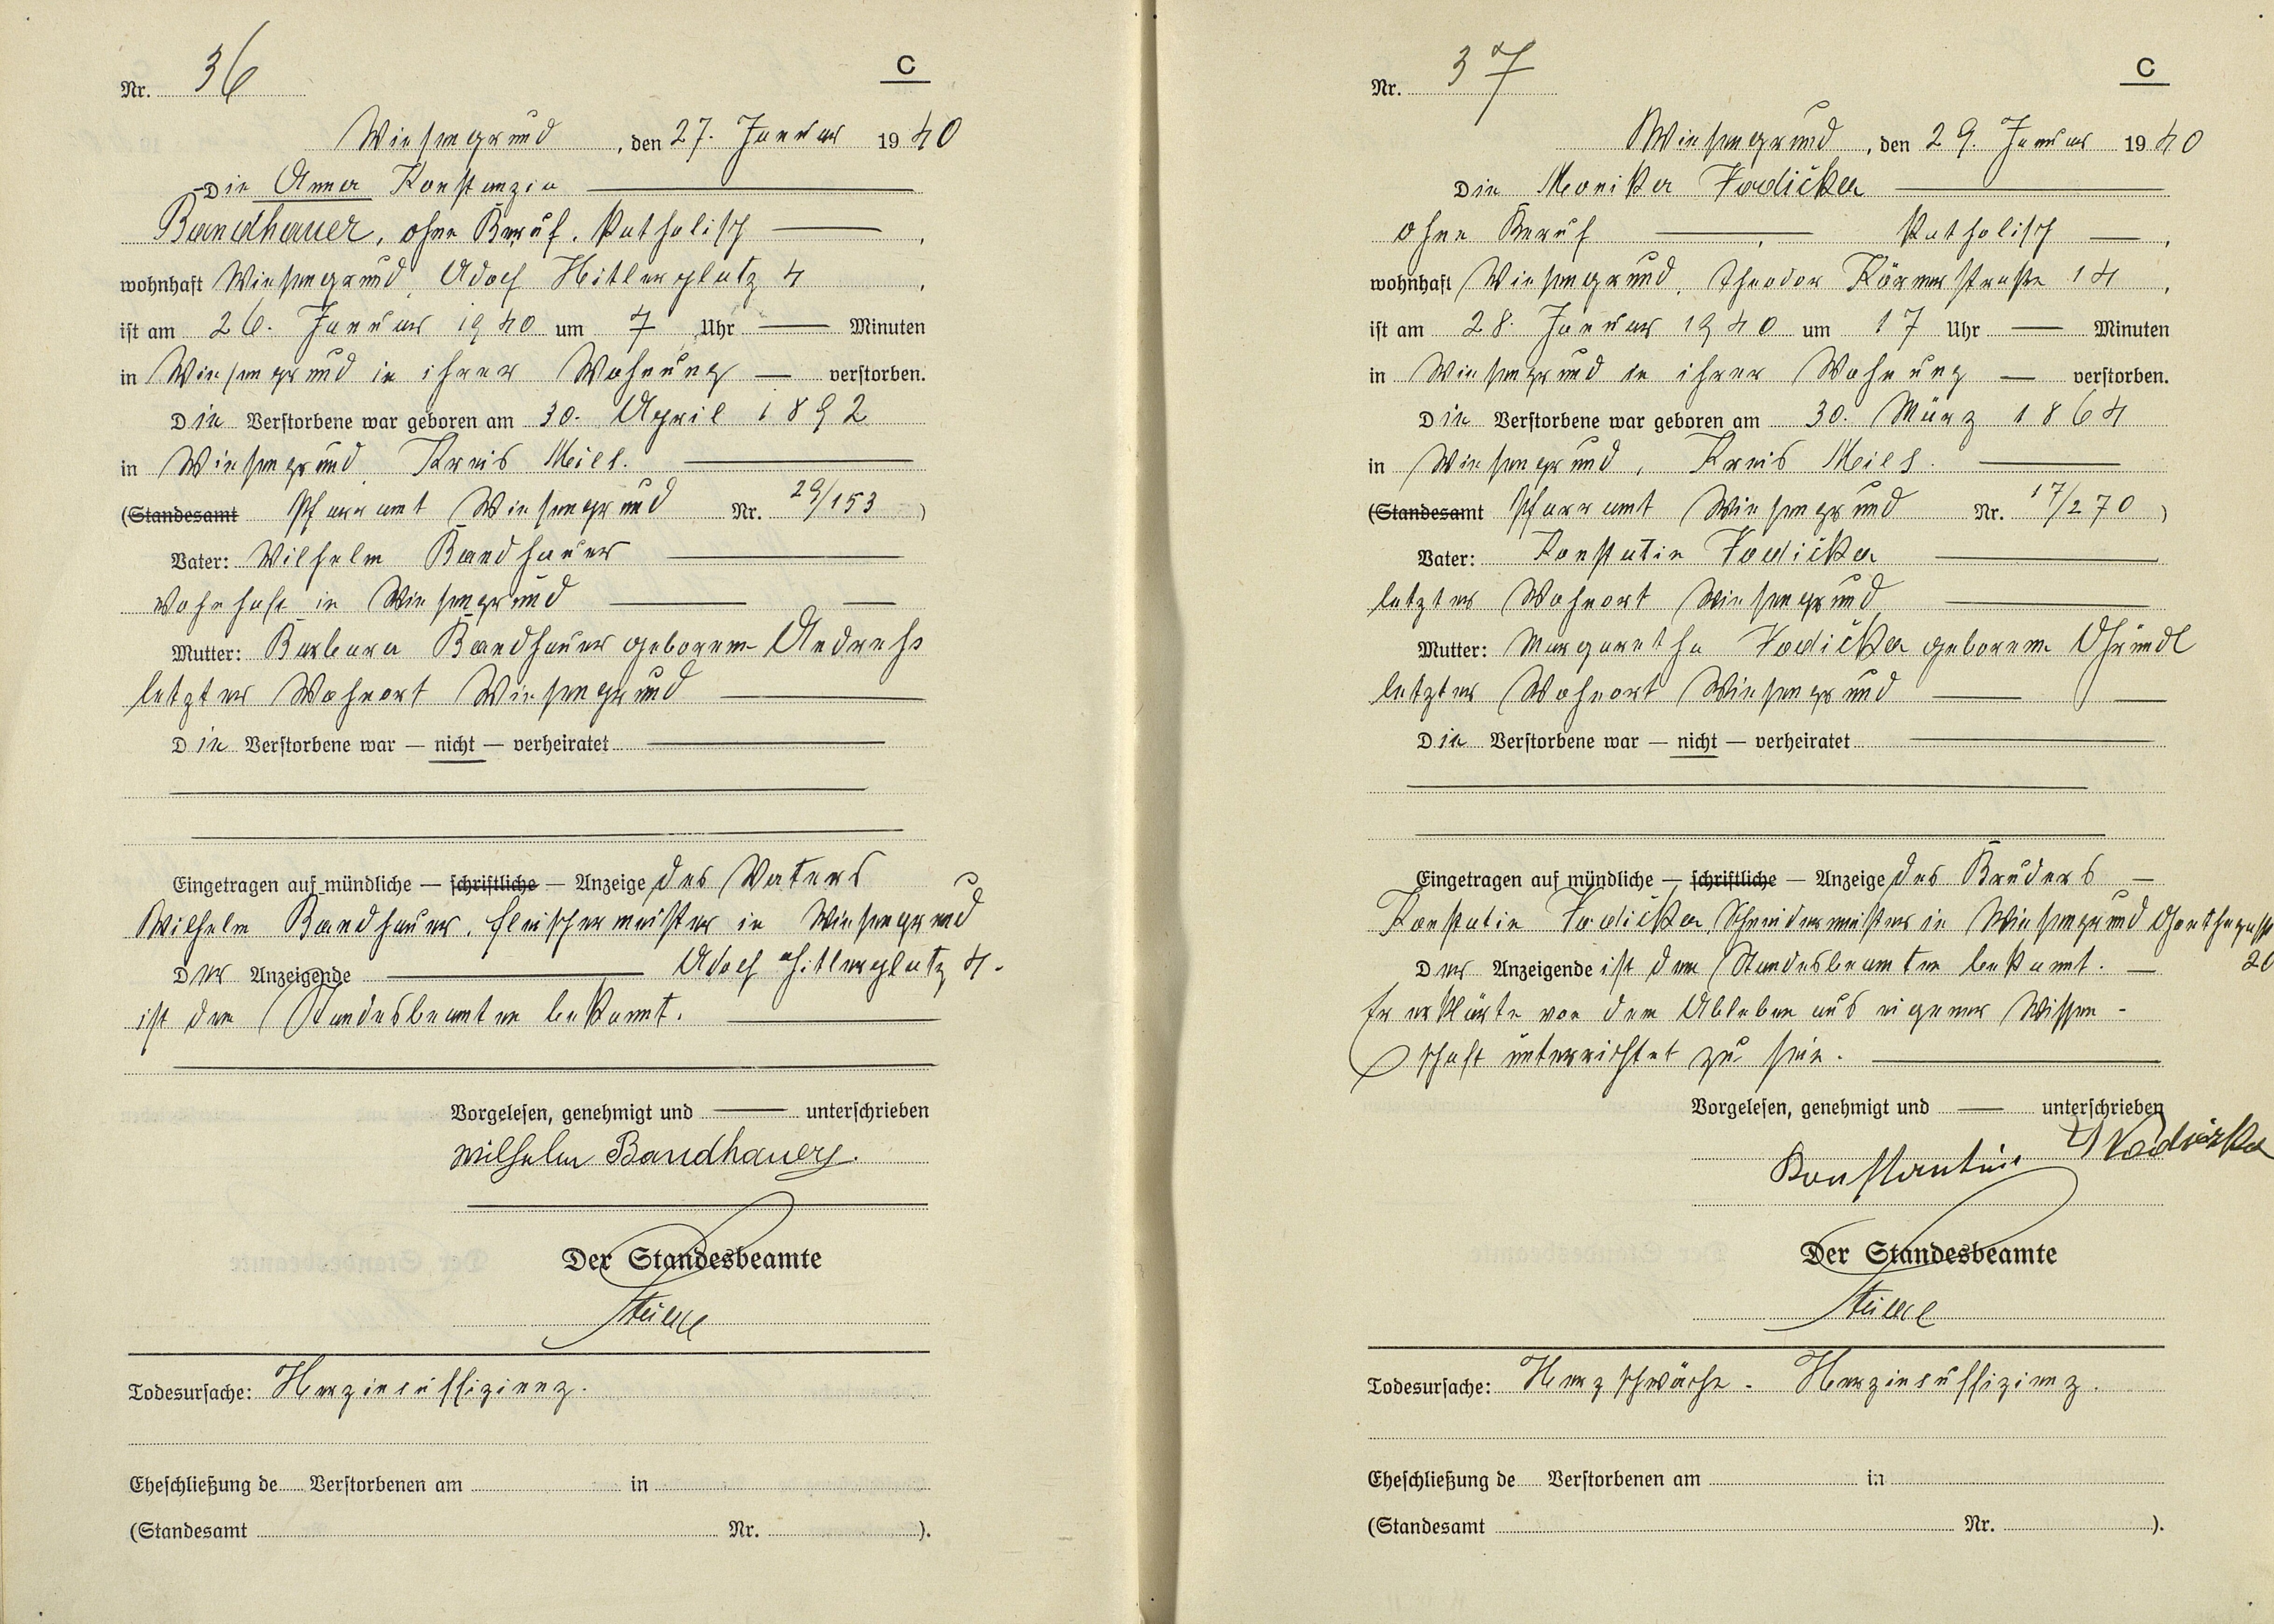 Nr. 36
C
Wiesengrund, den 27. Januar 1940
Die Anna Konstanzia
Bandhauer, ohne Beruf, katholisch,
wohnhaft Wiesengrund, Adolf Hitlerplatz 4,
ist am 26. Januar 1940 um 7 Uhr — Minuten
in Wiesengrund in ihrer Wohnung — verstorben.
Die Verstorbene war geboren am 30. April 1892
in Wiesengrund, Kreis Mies.
(Standesamt Pfarramt Wiesengrund Nr. 29/153)
Vater: Wilhelm Bandhauer
wohnhaft in Wiesengrund
Mutter: Barbara Bandhauer geborene Andreß
letzter Wohnort Wiesengrund
Die Verstorbene war — nicht — verheiratet
Eingetragen auf mündliche — schriftliche — Anzeige des Vaters
Wilhelm Bandhauer, Fleischermeister in Wiesengrund
Der Anzeigende — Adolf Hitlerplatz 4.
ist dem Standesbeamten bekannt.
Vorgelesen, genehmigt und — unterschrieben
Wilhelm Bandhauer.
Der Standesbeamte
Todesursache: Herzinsuffizienz.
Eheschließung de Verstorbenen am in
(Standesamt Nr. ).
Nr. 37
C
Wiesengrund, den 29. Januar 1940
Die Monika Vodička
ohne Beruf —, katholisch —,
wohnhaft Wiesengrund, Theodor Körnerstraße 14,
ist am 28. Januar 1940 um 17 Uhr — Minuten
in Wiesengrund in ihrer Wohnung — verstorben.
Die Verstorbene war geboren am 30. März 1864
in Wiesengrund, Kreis Mies.
(Standesamt Pfarramt Wiesengrund Nr. 17/270)
Vater: Konstatin Vodička
letzter Wohnort Wiesengrund
Mutter: Margaretha Vodička geborene
letzter Wohnort Wiesengrund
Die Verstorbene war — nicht — verheiratet
Eingetragen auf mündliche — schriftliche — Anzeige des Bruders —
Konstatin Vodička, Schneidermeister in Wiesengrund
Der Anzeigende ist dem Standesbeamten bekannt. — 20
Er erklärte von dem Ableben aus eigener Wissen-
schaft unterrichtet zu sein.
Vorgelesen, genehmigt und — unterschrieben
Konstantin Wodiczka
Der Standesbeamte
Todesursache: Herzschwäche - Herzinsuffizienz.
Eheschließung de Verstorbenen am in
(Standesamt Nr. ).